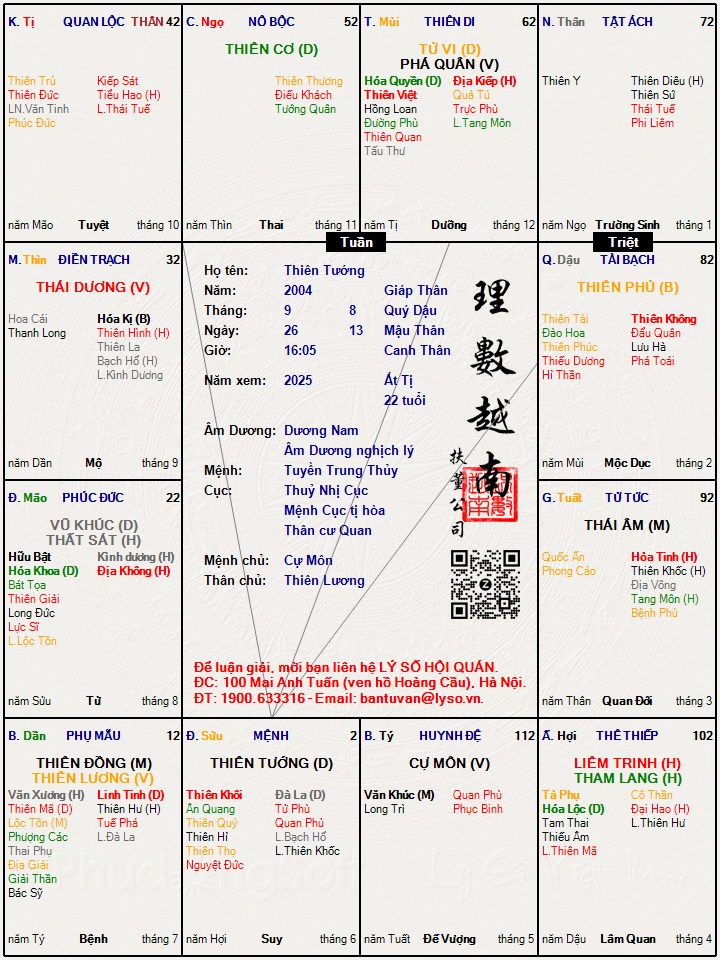 K. Tị QUAN LỘC THÂN 42
Thiên Trù Kiếp Sát
Thiên Đức Tiểu Hao (H)
LN.Văn Tinh L.Thái Tuế
Phúc Đức
năm Mão Tuyệt tháng 10
C. Ngọ NÔ BỘC 52
THIÊN CƠ (D)
Thiên Thương
Điếu Khách
Tướng Quân
năm Thìn Thai tháng 11
T. Mùi THIÊN DI 62
TỬ VI (D)
PHÁ QUÂN (V)
Hóa Quyền (D) Địa Kiếp (H)
Thiên Việt Quả Tú
Hồng Loan Trực Phù
Đường Phù L.Tang Môn
Thiên Quan
Tấu Thư
năm Tị Dưỡng tháng 12
N. Thân TẬT ÁCH 72
Thiên Y Thiên Diêu (H)
Thiên Sứ
Thái Tuế
Phi Liêm
năm Ngọ Trường Sinh tháng 1
Tuần
Triệt
M. Thìn ĐIỀN TRẠCH 32
THÁI DƯƠNG (V)
Hoa Cái Hóa Kị (B)
Thanh Long Thiên Hình (H)
Thiên La
Bạch Hổ (H)
L.Kình Dương
năm Dần Mộ tháng 9
Họ tên: Thiên Tướng
Năm: 2004 Giáp Thân
Tháng: 9 8 Quý Dậu
Ngày: 26 13 Mậu Thân
Giờ: 16:05 Canh Thân
Năm xem: 2025 Ất Tị
22 tuổi
Âm Dương: Dương Nam
Âm Dương nghịch lý
Mệnh: Tuyền Trung Thủy
Cục: Thuỷ Nhị Cục
Mệnh Cục tị hòa
Thân cư Quan
Mệnh chủ: Cự Môn
Thân chủ: Thiên Lương
理數越南
扶董公司
Để luận giải, mời bạn liên hệ LÝ SỐ HỘI QUÁN.
ĐC: 100 Mai Anh Tuấn (ven hồ Hoàng Cầu), Hà Nội.
ĐT: 1900.633316 - Email: bantuvan@lyso.vn.
Q. Dậu TÀI BẠCH 82
THIÊN PHỦ (B)
Thiên Tài Thiên Không
Đào Hoa Đẩu Quân
Thiên Phúc Lưu Hà
Thiếu Dương Phá Toái
Hỉ Thần
năm Mùi Mộc Dục tháng 2
Đ. Mão PHÚC ĐỨC 22
VŨ KHÚC (D)
THẤT SÁT (H)
Hữu Bật Kình dương (H)
Hóa Khoa (D) Địa Không (H)
Bát Tọa
Thiên Giải
Long Đức
Lực Sĩ
L.Lộc Tồn
năm Sửu Tử tháng 8
G. Tuất TỬ TỨC 92
THÁI ÂM (M)
Quốc Ấn Hỏa Tinh (H)
Phong Cáo Thiên Khốc (H)
Địa Võng
Tang Môn (H)
Bệnh Phù
năm Thân Quan Đới tháng 3
B. Dần PHỤ MẪU 12
THIÊN ĐỒNG (M)
THIÊN LƯƠNG (V)
Văn Xương (H) Linh Tinh (D)
Thiên Mã (D) Thiên Hư (H)
Lộc Tồn (M) Tuế Phá
Phượng Các L.Đà La
Thai Phụ
Địa Giải
Giải Thần
Bác Sỹ
năm Tý Bệnh tháng 7
Đ. Sửu MỆNH 2
THIÊN TƯỚNG (D)
Thiên Khôi Đà La (D)
Ân Quang Tử Phù
Thiên Quý Quan Phủ
Thiên Hỉ L.Bạch Hổ
Thiên Thọ L.Thiên Khốc
Nguyệt Đức
năm Hợi Suy tháng 6
B. Tý HUYNH ĐỆ 112
CỰ MÔN (V)
Văn Khúc (M) Quan Phù
Long Trì Phục Binh
năm Tuất Đế Vượng tháng 5
Ấ. Hợi THÊ THIẾP 102
LIÊM TRINH (H)
THAM LANG (H)
Tả Phụ Cô Thần
Hóa Lộc (D) Đại Hao (H)
Tam Thai L.Thiên Hư
Thiếu Âm
L.Thiên Mã
năm Dậu Lâm Quan tháng 4